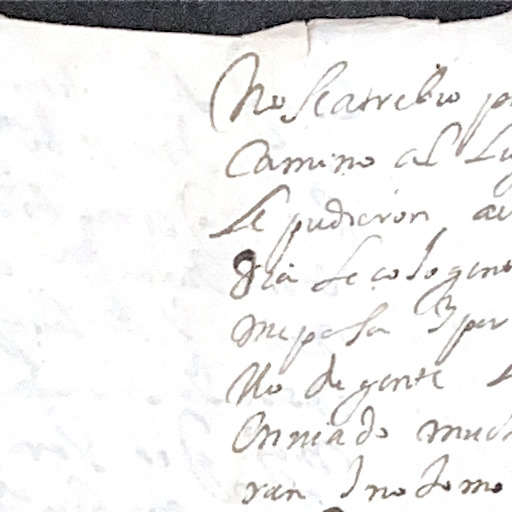 No se atrebio
Camino al
se pudieron
dia se cojo gen
me pesa y per
No de gente
Enviado much
ran y no tomo